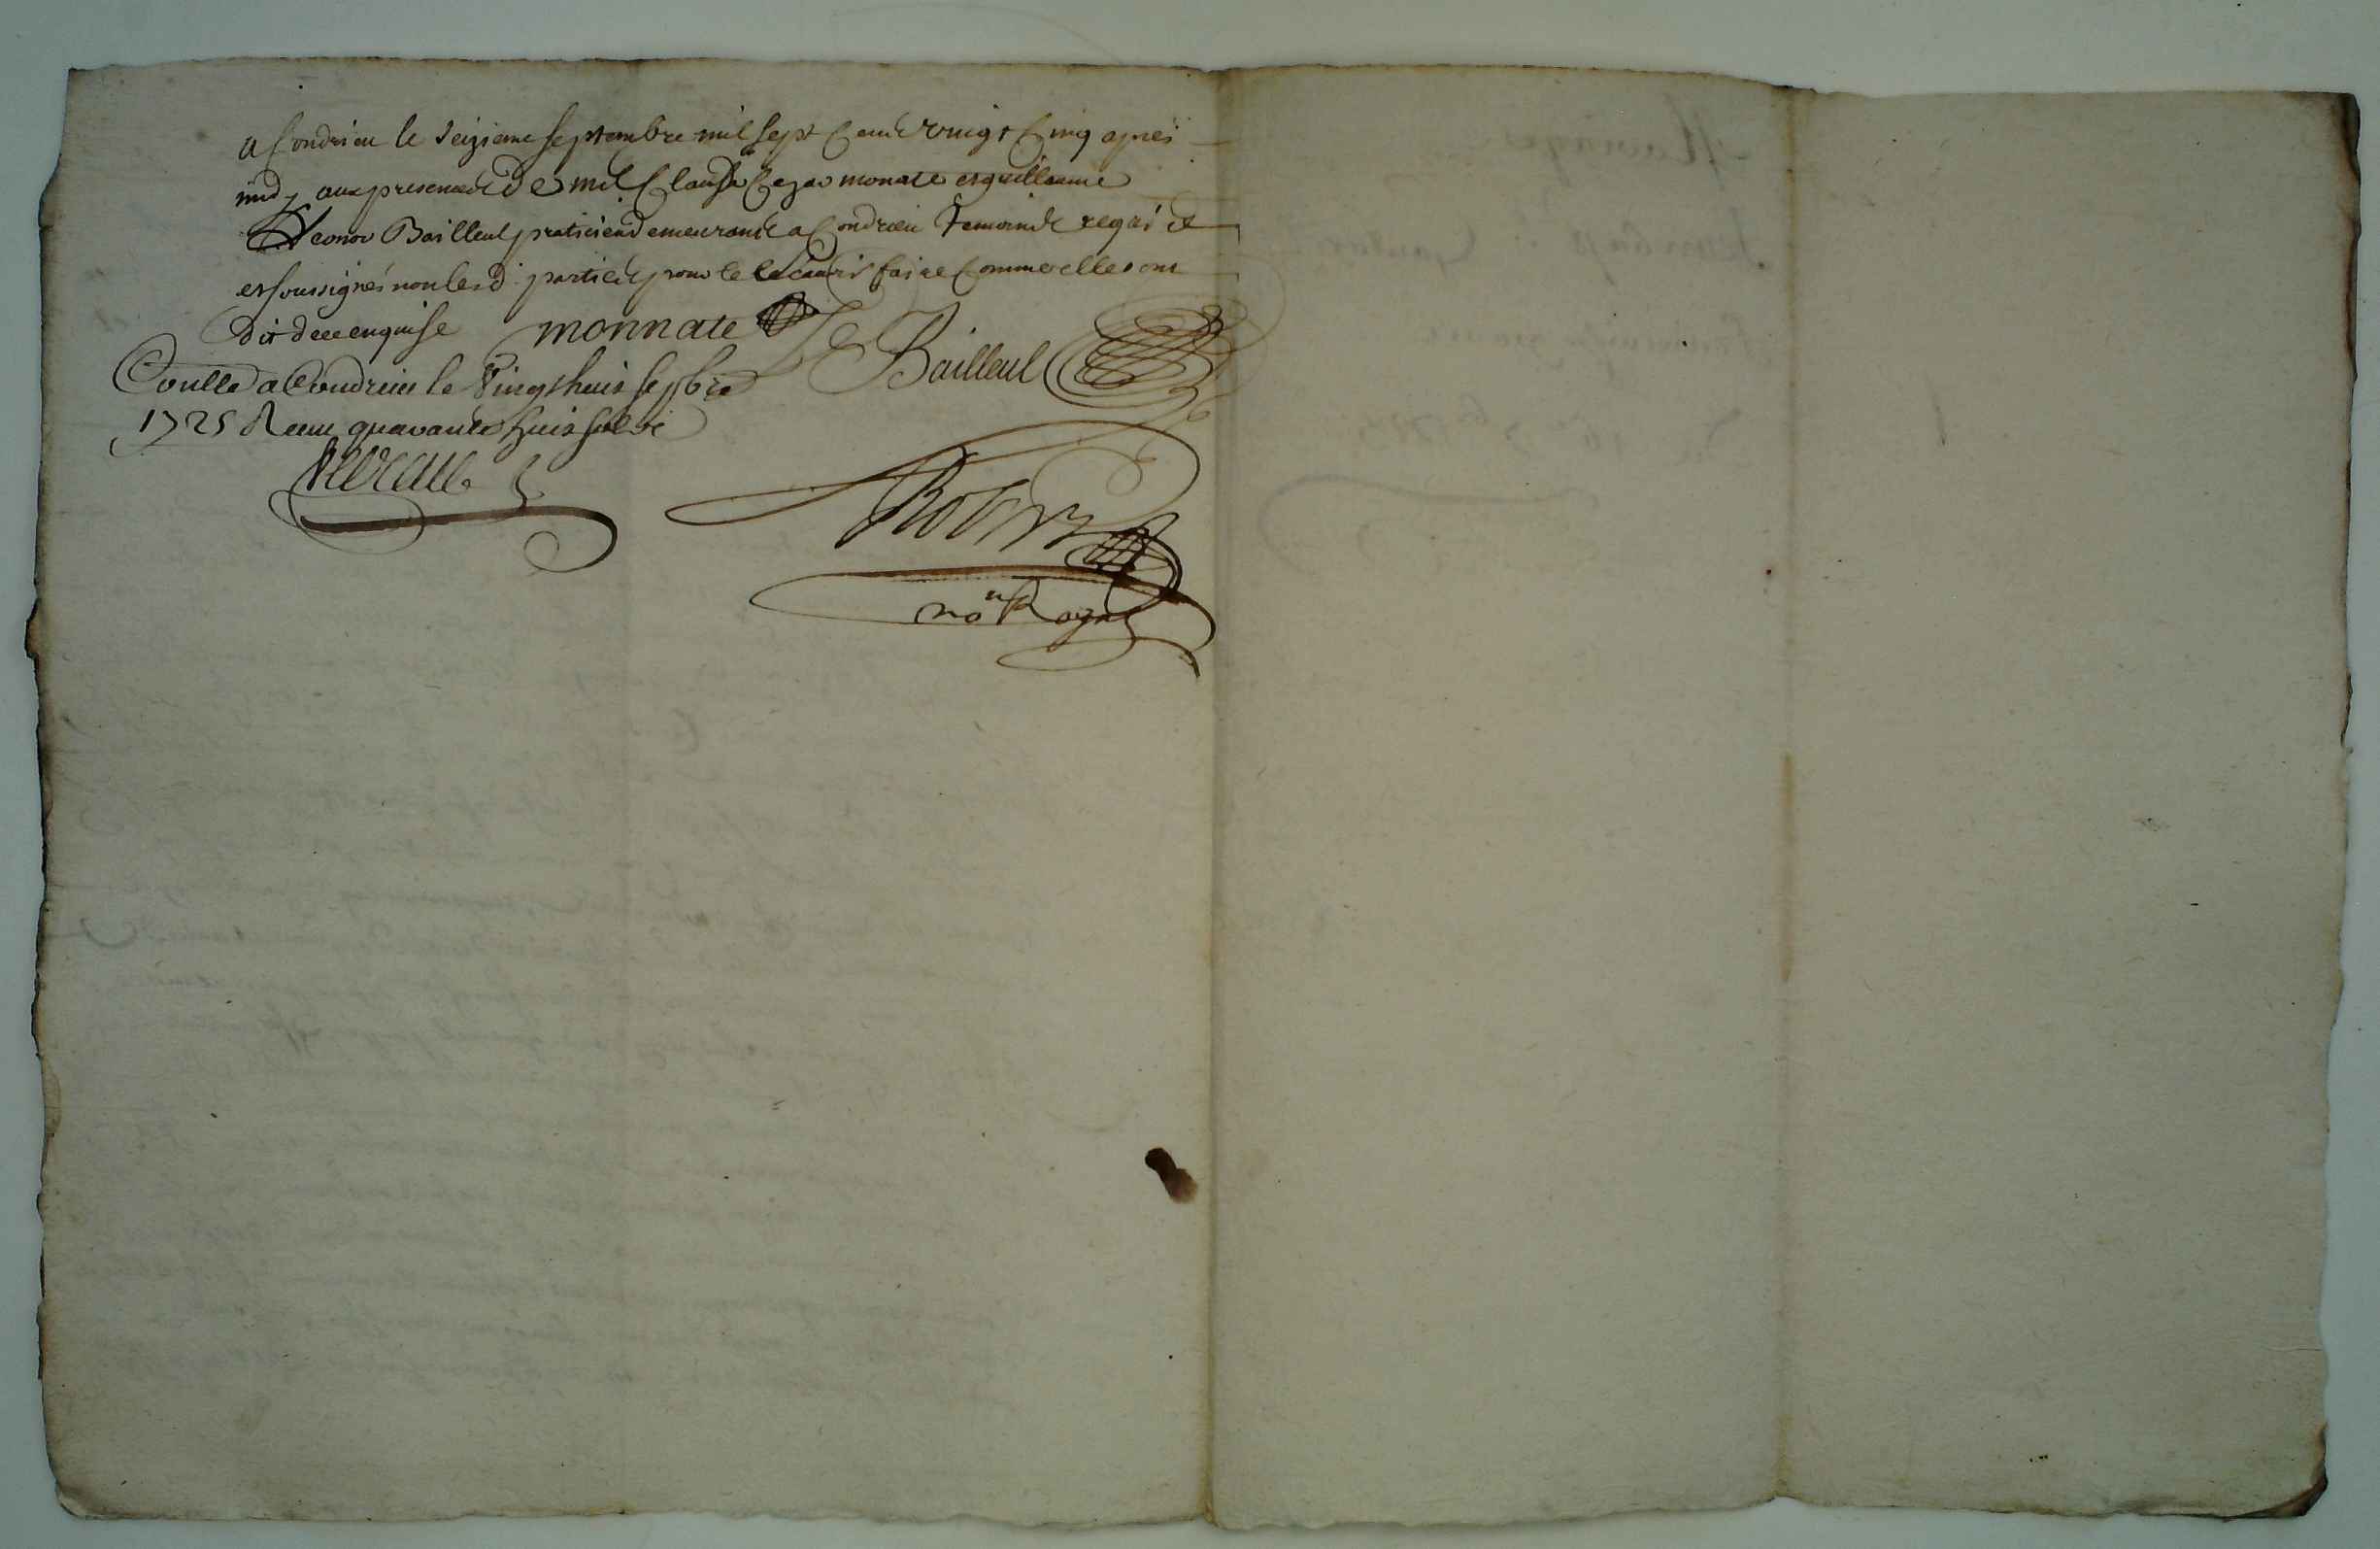 a Condrieu le seizieme septembre mil sept Cent vingt Cinq apres
midy aux presences de Me Claude Cezar monate et guillaume
Leonor Bailleul praticiens demeurants a Condrieu temoins requis
et soussignés non lesd. parties pour ne le scavoir faire Comme elles ont
dit de ce enquise monnate Le Bailleul
Conllé a Condrieu le Vingt huit sepbre
1725 Receu quarante huit sols
Robert
no.re Royal